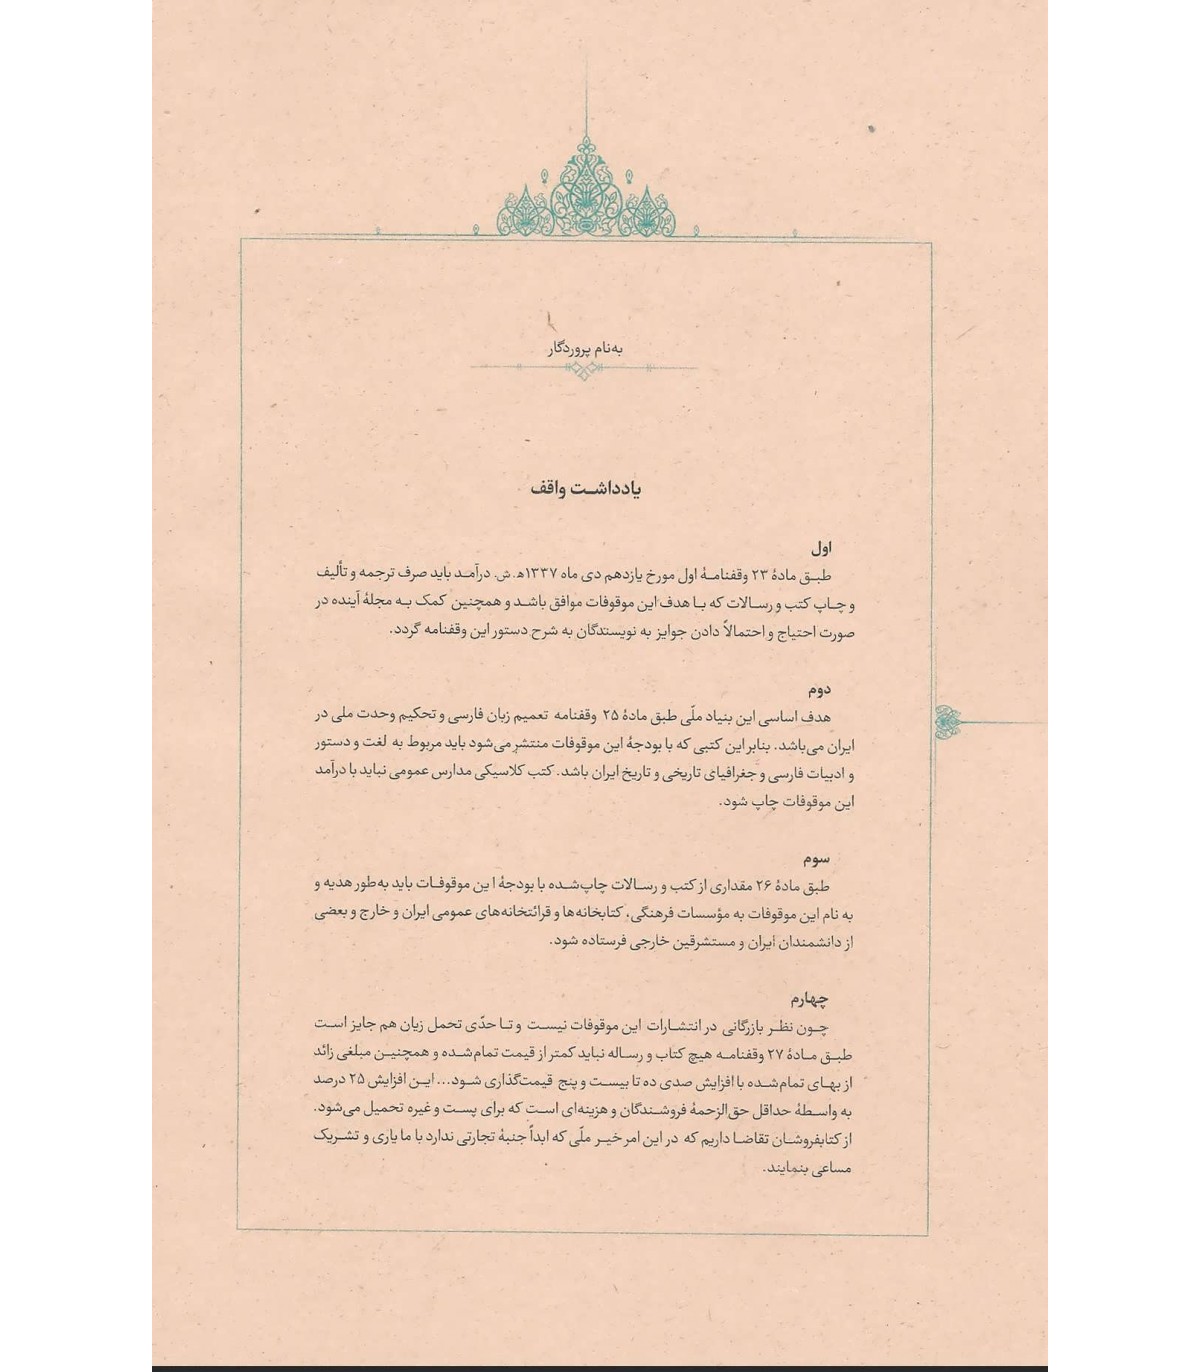 به‌نام پروردگار
یادداشت واقف
اول
طبق مادهٔ ۲۳ وقفنامهٔ اول مورخ یازدهم دی ماه ۱۳۳۷ه‍. ش. درآمد باید صرف ترجمه و تألیف
و چاپ کتب و رسالات که با هدف این موقوفات موافق باشد و همچنین کمک به مجلهٔ آینده در
صورت احتیاج و احتمالاً دادن جوایز به نویسندگان به شرح دستور این وقفنامه گردد.
دوم
هدف اساسی این بنیاد ملّی طبق مادهٔ ۲۵ وقفنامه تعمیم زبان فارسی و تحکیم وحدت ملی در
ایران می‌باشد. بنابراین کتبی که با بودجهٔ این موقوفات منتشر می‌شود باید مربوط به لغت و دستور
و ادبیات فارسی و جغرافیای تاریخی و تاریخ ایران باشد. کتب کلاسیکی مدارس عمومی نباید با درآمد
این موقوفات چاپ شود.
سوم
طبق مادهٔ ۲۶ مقداری از کتب و رسالات چاپ‌شده با بودجهٔ این موقوفات باید به‌طور هدیه و
به نام این موقوفات به مؤسسات فرهنگی، کتابخانه‌ها و قرائتخانه‌های عمومی ایران و خارج و بعضی
از دانشمندان ایران و مستشرقین خارجی فرستاده شود.
چهارم
چون نظر بازرگانی در انتشارات این موقوفات نیست و تا حدّی تحمل زیان هم جایز است
طبق مادهٔ ۲۷ وقفنامه هیچ کتاب و رساله نباید کمتر از قیمت تمام‌شده و همچنین مبلغی زائد
از بهای تمام‌شده با افزایش صدی ده تا بیست و پنج قیمت‌گذاری شود... این افزایش ۲۵ درصد
به واسطهٔ حداقل حق‌الزحمهٔ فروشندگان و هزینه‌ای است که برای پست و غیره تحمیل می‌شود.
از کتابفروشان تقاضا داریم که در این امر خیر ملّی که ابداً جنبهٔ تجارتی ندارد با ما یاری و تشریک
مساعی بنمایند.